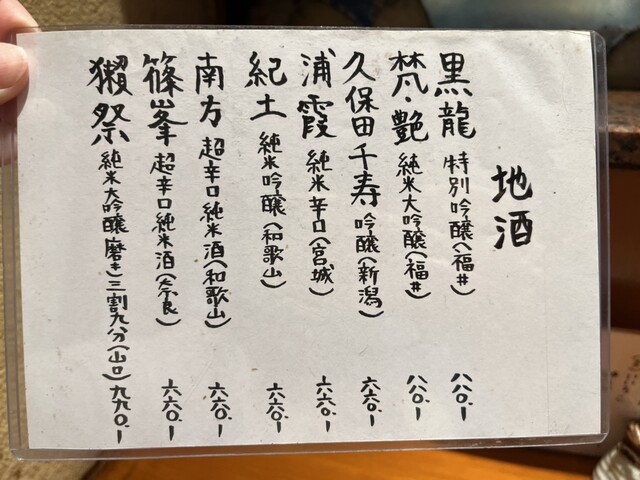 地酒
黒龍 特別吟醸(福井) 八八〇.ー
梵・艶 純米大吟醸(福井) 八八〇.ー
久保田千寿 吟醸(新潟) 六六〇.ー
浦霞 純米辛口(宮城) 六六〇.ー
紀土 純米吟醸(和歌山) 六六〇.ー
南方 超辛口純米酒(和歌山) 六六〇.ー
篠峯 超辛口純米酒(奈良) 六六〇.ー
獺祭 純米大吟醸磨き三割九分(山口) 九九〇.ー